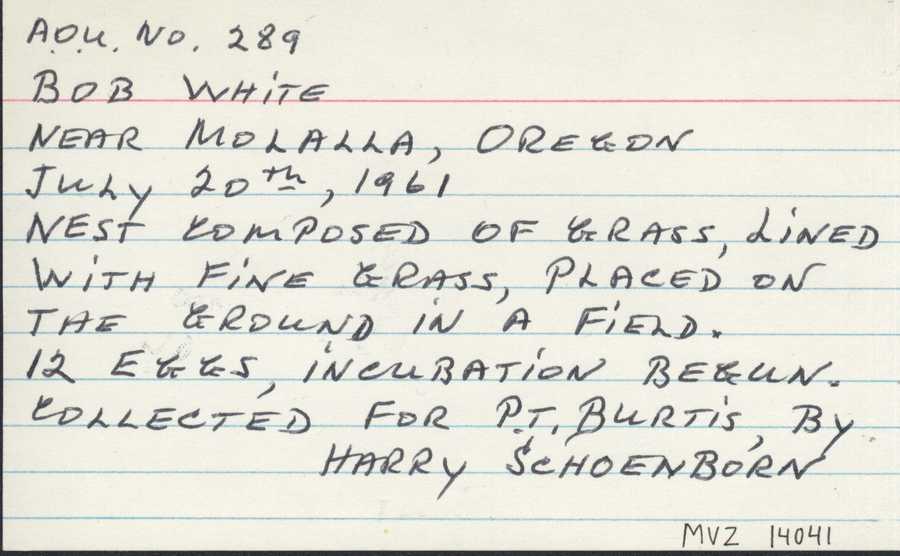 A.O.U. No. 289
BOB WHiTE
NEAR MOLALLA, OREGON
JULY 20th, 1961
NEST COMPOSED OF GRASS, LiNED
WiTH FiNE GRASS, PLACED ON
THE GROUND iN A FiELD.
12 EGGS, iNCUBATiON BEGUN.
COLLECTED FOR P.T. BURTiS, BY
HARRY SCHOENBORN
MVZ 14041